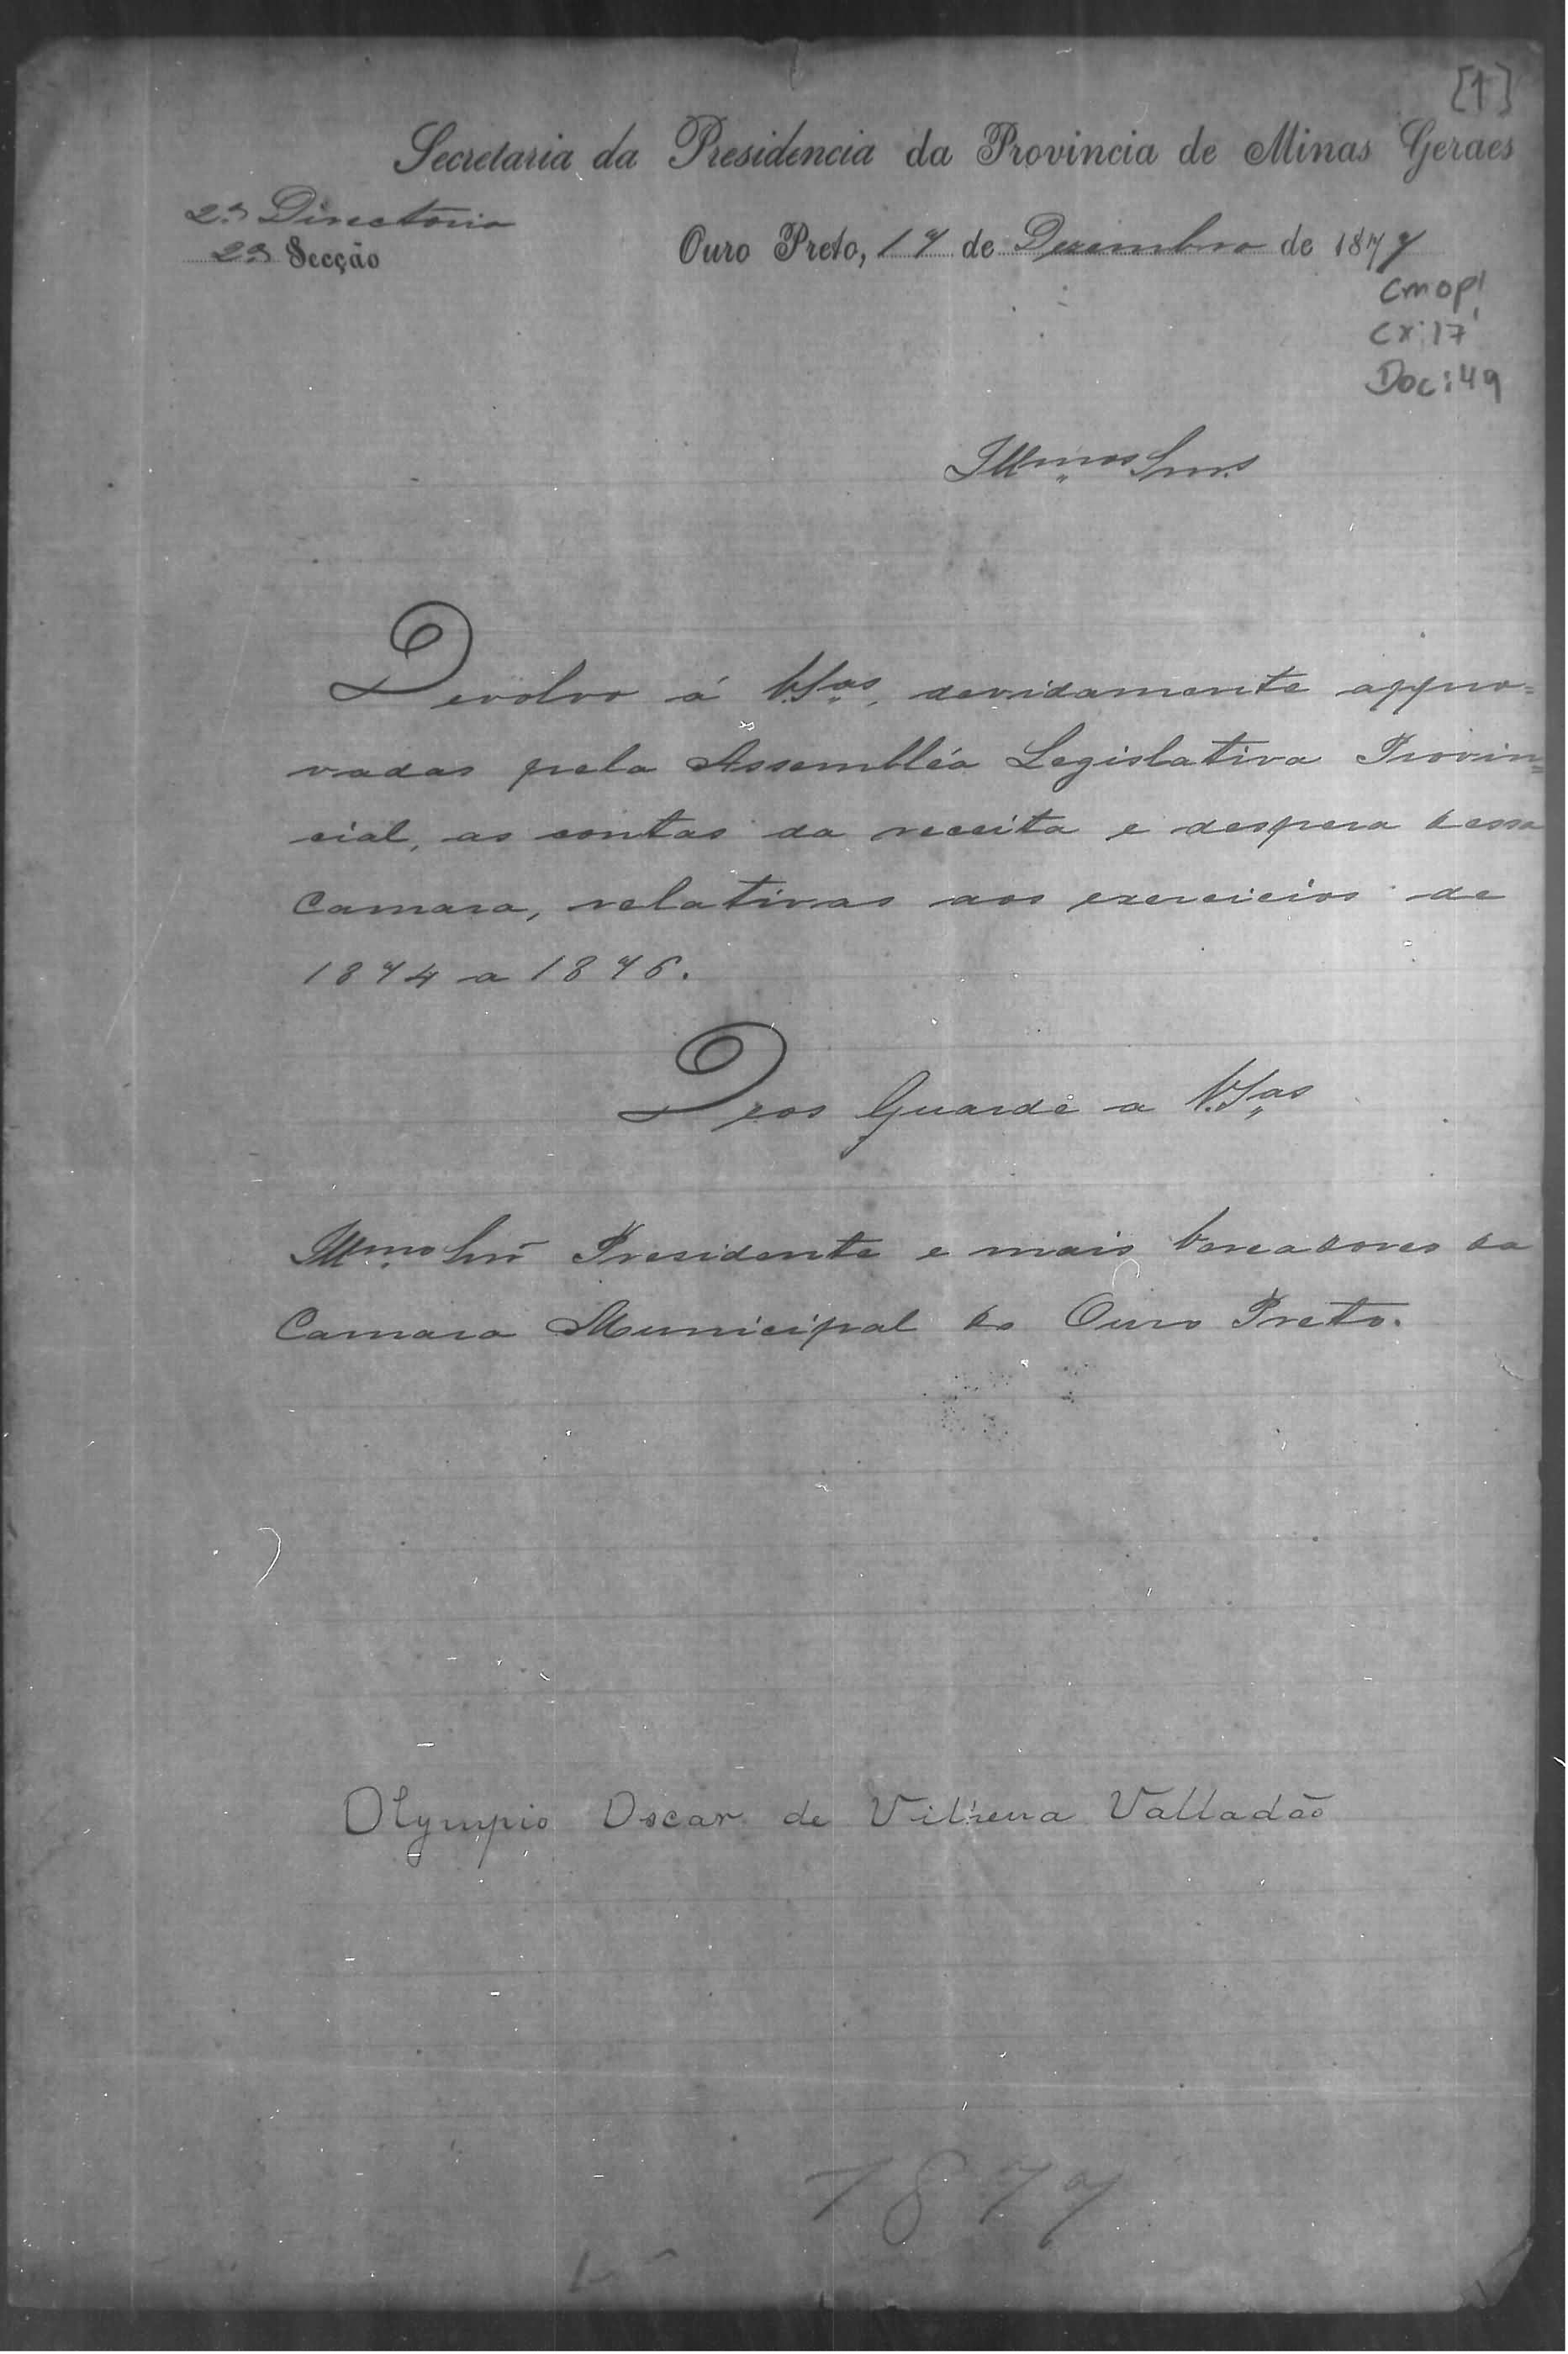 [1]
Secretaria da Presidencia da Provincia de Minas Geraes
2ª Directoria
2ª Secção
Ouro Preto, 17 de Dezembro de 1877
CMOP
Cx: 17
Doc: 49
Illmos Snrs
Devolvo á V.Sas, devidamente appro=
vadas pela Assembléa Legislativa Provin=
cial, as contas da receita e despeza dessa
Camara, relativas aos exercicios de
1874 a 1876.
Deos Guarde a V.Sas
Illmo Snr Presidente e mais Vereadores da
Camara Municipal do Ouro Preto.
Olympio Oscar de Vilhena Valladão
1877